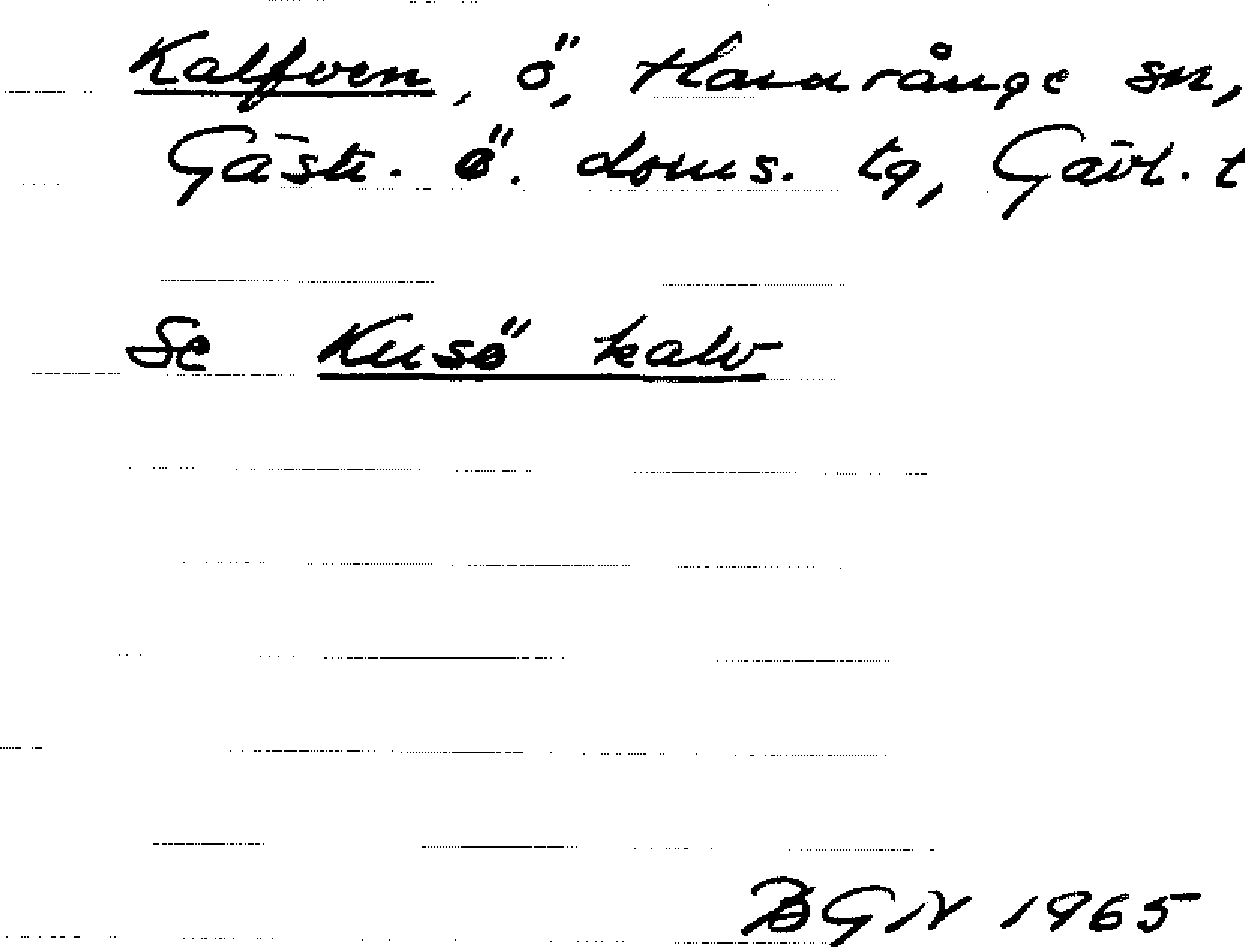 Kalfven, ö, Hamrånge sn,
Gästr. ö. doms. tg, Gävl. l
Se Kusö kalv
BGN 1965